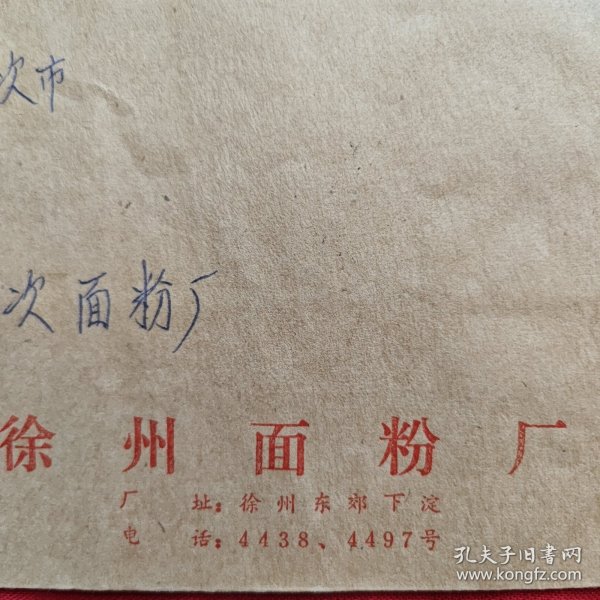 次市
次面粉厂
徐州面粉厂
厂 址：徐州东郊下淀
电 话：4438、4497号
孔夫子旧书网
www.kongfz.com